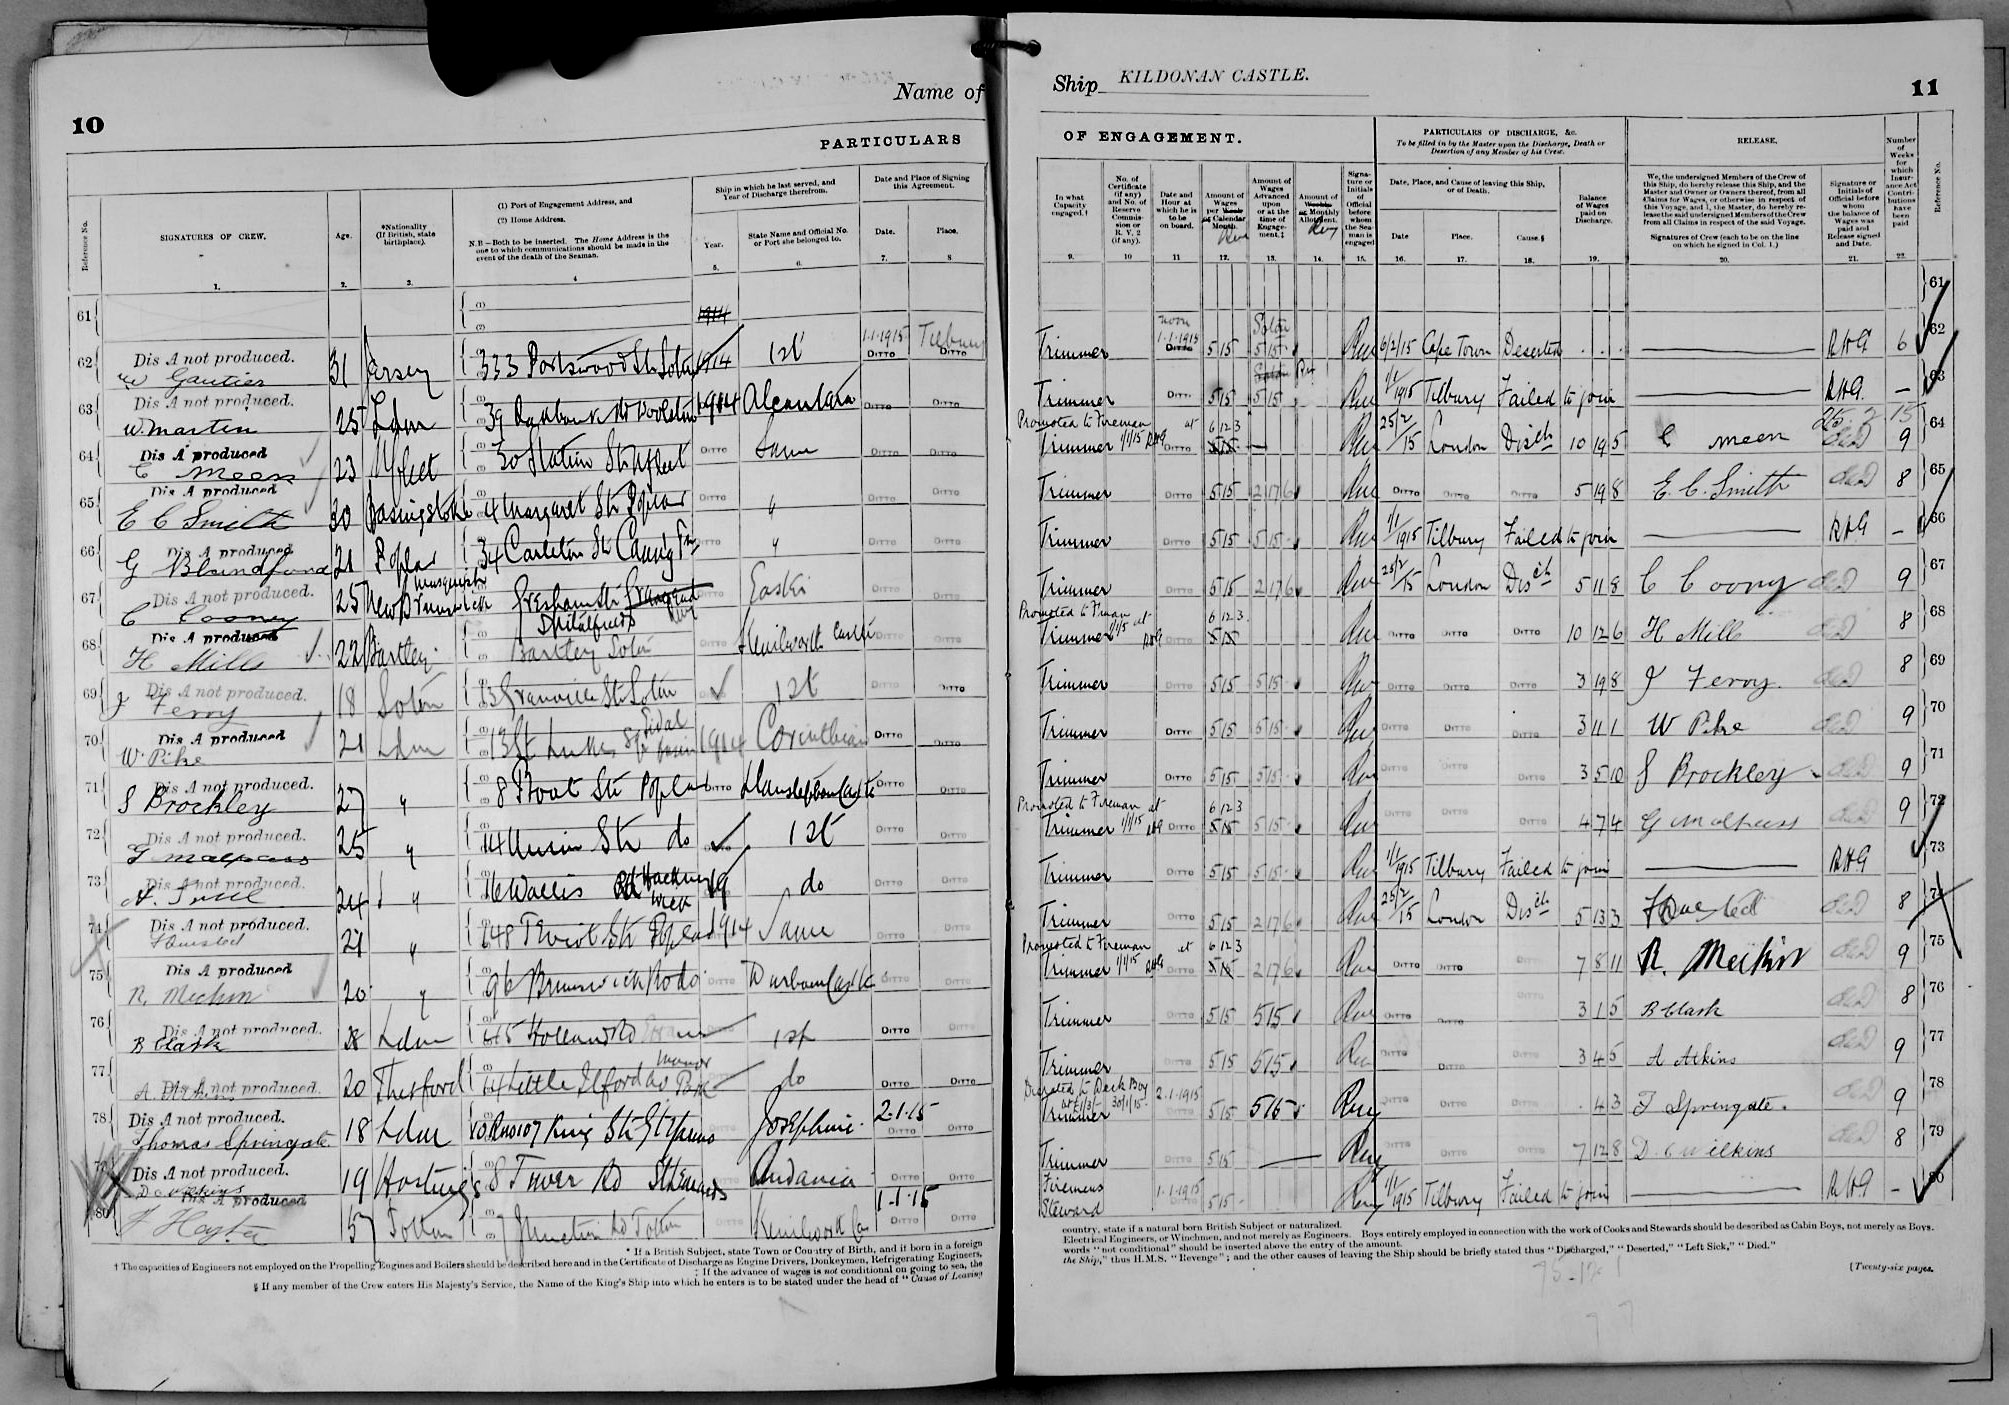 10
Name of
Ship KILDONAN CASTLE.
11
PARTICULARS
OF ENGAGEMENT.
PARTICULARS OF DISCHARGE, &c.
To be filled in by the Master upon the Discharge, Death or Desertion of any Member of his Crew.
RELEASE.
Number of Weeks for which Insurance Act Contributions have been paid
Reference No.
SIGNATURES OF CREW.
Age.
*Nationality (If British, state birthplace).
(1) Port of Engagement Address, and
(2) Home Address.
N.B.—Both to be inserted. The Home Address is the one to which communications should be made in the event of the death of the Seaman.
Ship in which he last served, and Year of Discharge therefrom.
Year.
State Name and Official No. or Port she belonged to.
Date and Place of Signing this Agreement.
Date.
Place.
In what Capacity engaged.†
No. of Certificate (if any) and No. of Reserve Commission or R. V. 2 (if any).
Date and Hour at which he is to be on board.
Amount of Wages per Week or Calendar Month.
Amount of Wages Advanced upon or at the time of Engagement.‡
Amount of Weekly or Monthly Allotment.
Signature or Initials of Official before whom the Seaman is engaged
Date, Place, and Cause of leaving this Ship, or of Death.
Date
Place.
Cause.§
Balance of Wages paid on Discharge.
We, the undersigned Members of the Crew of this Ship, do hereby release this Ship, and the Master and Owner or Owners thereof, from all Claims for Wages, or otherwise in respect of this Voyage, and I, the Master, do hereby release the said undersigned Members of the Crew from all Claims in respect of the said Voyage.
Signatures of Crew (each to be on the line on which he signed in Col. 1.)
Signature or Initials of Official before whom the balance of Wages was paid and Release signed and Date.
Reference No.
1. 2. 3. 4 5. 6. 7. 8
9. 10 11 12. 13. 14. 15. 16. 17. 18. 19. 20. 21. 22.
61 1914 61
62 Dis A not produced. W Gautier 31 Jersey 333 Portswood St Soton 1914 1st 1.1.1915 DITTO Tilbury DITTO
Trimmer noon 1.1.1915 5 15 5 15 6/2/15 Cape Town Deserted RHG 6 62
63 Dis A not produced. W. Martin 25 Ldon 39 1914 Alcantara DITTO DITTO
Trimmer DITTO 5 15 5 15 1/1 1915 Tilbury Failed to join RHG. — 63
64 Dis A produced C Meen 23 30 Station St DITTO Same DITTO DITTO
Promoted to Fireman at 6 12 3
Trimmer 1/1/15 RHG DITTO 5 15 — 25/2/15 London Disch 10 19 5 C Meen 9 64
65 Dis A produced E C Smith 30 Basingstoke 4 Margaret St Poplar DITTO " DITTO DITTO
Trimmer DITTO 5 15 2 17 6 DITTO DITTO DITTO 5 19 8 E. C. Smith 8 65
66 Dis A produced G Blandford 21 Poplar 34 Carleton St DITTO " DITTO DITTO
Trimmer DITTO 5 15 5 15 1/1 1915 Tilbury Failed to join RHG — 66
67 Dis A not produced. C Cooney 25 New Brunswick Gresham St Gravesend Spitalfields DITTO DITTO DITTO
Trimmer DITTO 5 15 2 17 6 25/2/15 London Disch 5 11 8 C Coony 9 67
68 Dis A produced H Mills 22 Bartley Bartley Soton DITTO Kenilworth Castle DITTO DITTO
Promoted to Fireman at 1/1/15 6 12 3
Trimmer RHG DITTO 5 15 DITTO DITTO DITTO 10 12 6 H Mill 8 68
69 Dis A not produced. J Ferry 18 Soton 23 Granville St Soton 1st DITTO DITTO
Trimmer DITTO 5 15 5 15 DITTO DITTO DITTO 3 19 8 J Ferry. 8 69
70 Dis A produced W. Pike 21 Ldon 13 St Lukes Sq Tidal Basin 1914 Corinthian DITTO DITTO
Trimmer DITTO 5 15 5 15 DITTO DITTO DITTO 3 11 1 W Pike 9 70
71 Dis A not produced. S Brockley 27 " 8 Boat St Poplar DITTO DITTO DITTO
Trimmer DITTO 5 15 5 15 DITTO DITTO DITTO 3 5 10 S Brockley 9 71
72 Dis A not produced. G Malpass 25 " 14 Union St do 1st DITTO DITTO
Promoted to Fireman at 6 12 3
Trimmer 1/1/15 RHG DITTO 5 15 5 15 DITTO DITTO DITTO 4 7 4 G Malpass 9 72
73 Dis A not produced. 24 " 16 Wallis Rd Hackney Wick 19 do DITTO DITTO
Trimmer DITTO 5 15 5 15 1/1 1915 Tilbury Failed to join RHG 73
74 Dis A not produced. 27 " 248 Teviot St Poplar 1914 Same DITTO DITTO
Trimmer DITTO 5 15 2 17 6 25/2/15 London Disch 5 13 3 8 74
75 Dis A produced R. Meekin 20 " 96 Brunswick Rd do. DITTO Durham Castle DITTO
Promoted to Fireman at 6 12 3
Trimmer 1/1/15 RHG DITTO 5 15 2 17 6 DITTO DITTO DITTO 7 8 11 R. Meekin 9 75
76 Dis A not produced. B Clark Ldon 45 Holland Rd 1st DITTO DITTO
Trimmer DITTO 5 15 5 15 DITTO DITTO DITTO 3 1 5 B Clark 8 76
77 Dis A not produced. A. Atkins 20 Thetford 64 Little Ilford Manor Pk do DITTO DITTO
Trimmer DITTO 5 15 5 15 DITTO DITTO DITTO 3 4 5 A Atkins 9 77
78 Dis A not produced. Thomas Springate 18 Ldon 107 King St Josephine 2.1.15 DITTO DITTO
Disrated to Deck Boy 30/1/15
Trimmer 2.1.1915 5 15 5 15 DITTO DITTO DITTO 4 3 T Springate. 9 78
79 Dis A not produced. D C Wilkins 19 Hastings 8 Tower Rd St Leonards Andania DITTO DITTO
Trimmer DITTO 5 15 — DITTO DITTO DITTO 7 12 8 D. C Wilkins 8 79
80 Dis A produced 57 Totton 7 Junction Rd Totton DITTO Kenilworth Ca 1.1.15 DITTO DITTO
Firemens Steward 1.1.1915 5 15 1/1 1915 Tilbury Failed to join RHG — 80
* If a British Subject, state Town or Country of Birth, and if born in a foreign
† The capacities of Engineers not employed on the Propelling Engines and Boilers should be described here and in the Certificate of Discharge as Engine Drivers, Donkeymen, Refrigerating Engineers,
‡ If the advance of wages is not conditional on going to sea, the
§ If any member of the Crew enters His Majesty's Service, the Name of the King's Ship into which he enters is to be stated under the head of "Cause of Leaving
country, state if a natural born British Subject or naturalized.
Electrical Engineers, or Winchmen, and not merely as Engineers. Boys entirely employed in connection with the work of Cooks and Stewards should be described as Cabin Boys, not merely as Boys.
words "not conditional" should be inserted above the entry of the amount.
the Ship," thus H.M.S. "Revenge"; and the other causes of leaving the Ship should be briefly stated thus "Discharged," "Deserted," "Left Sick," "Died."
[Twenty-six pages.